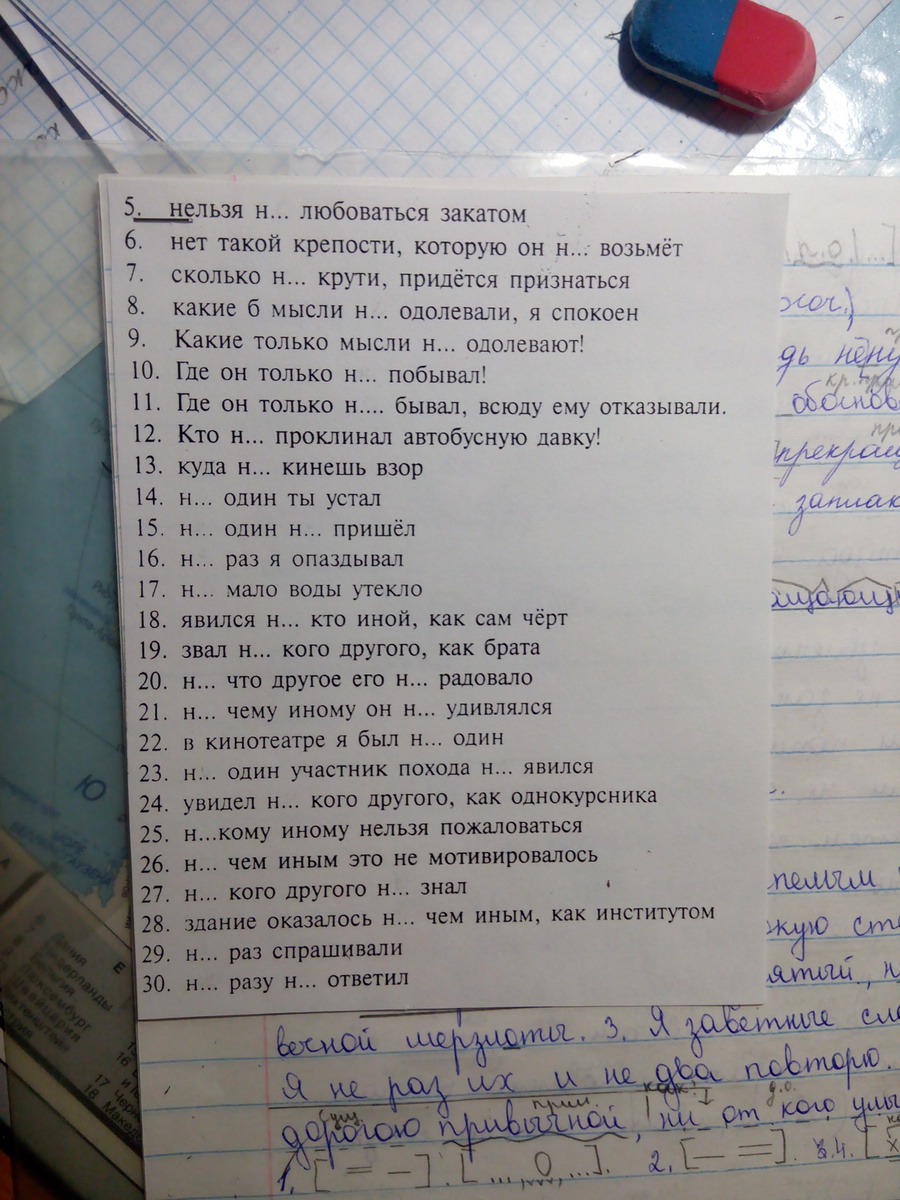 5. нельзя н... любоваться закатом
6. нет такой крепости, которую он н... возьмёт
7. сколько н... крути, придётся признаться
8. какие б мысли н... одолевали, я спокоен
9. Какие только мысли н... одолевают!
10. Где он только н... побывал!
11. Где он только н.... бывал, всюду ему отказывали.
12. Кто н... проклинал автобусную давку!
13. куда н... кинешь взор
14. н... один ты устал
15. н... один н... пришёл
16. н... раз я опаздывал
17. н... мало воды утекло
18. явился н... кто иной, как сам чёрт
19. звал н... кого другого, как брата
20. н... что другое его н... радовало
21. н... чему иному он н... удивлялся
22. в кинотеатре я был н... один
23. н... один участник похода н... явился
24. увидел н... кого другого, как однокурсника
25. н...кому иному нельзя пожаловаться
26. н... чем иным это не мотивировалось
27. н... кого другого н... знал
28. здание оказалось н... чем иным, как институтом
29. н... раз спрашивали
30. н... разу н... ответил
вечной мерзлоты. 3. Я заветные
Я не раз их и не два повторю.
дорогою привычной, ни от кого
1. [= –]. [..., ...]. 2. [– =]. 4. [
Ю
17
18 Македо